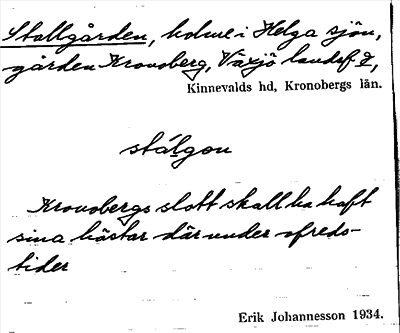 Stallgården, holme i Helga sjön,
gården Kronoberg, Växjö landsf,
Kinnevalds hd, Kronobergs län.
stálgon
Kronobergs slott skall ha haft
sina hästar där under ofreds-
tider
Erik Johannesson 1934.